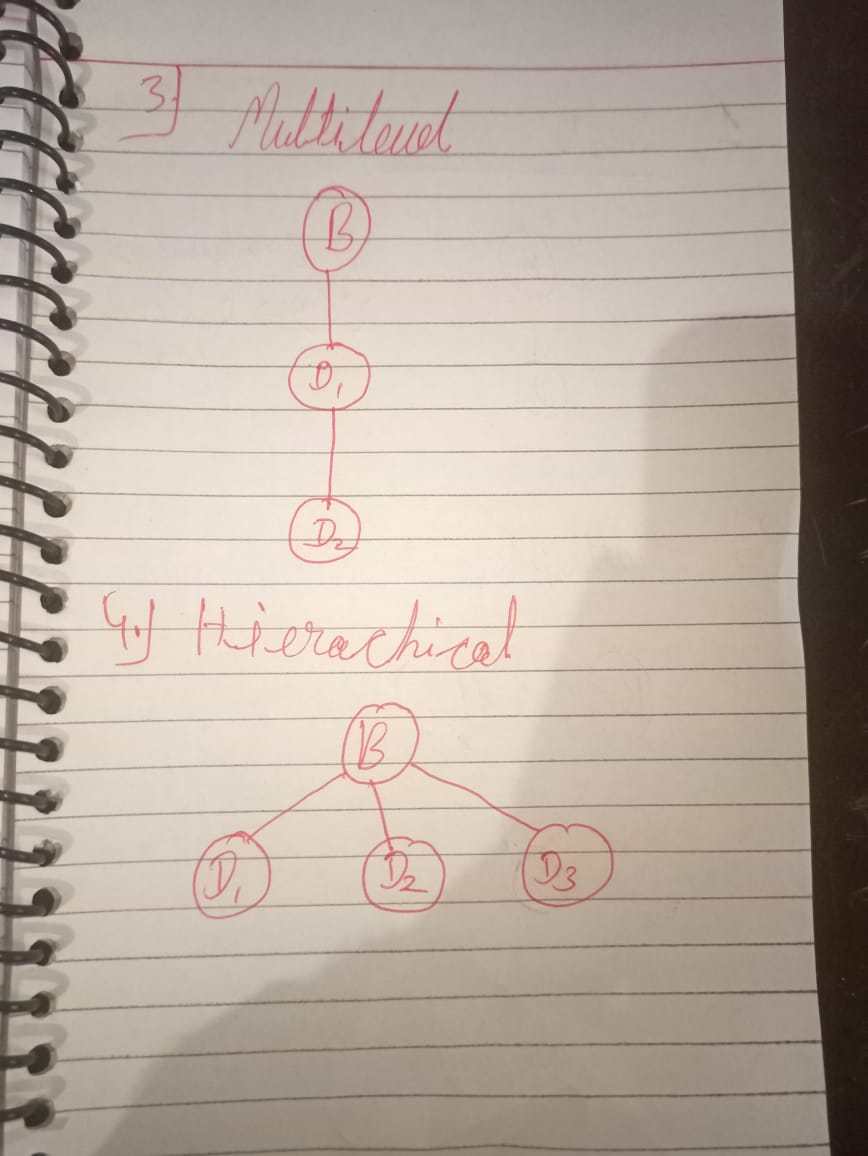 3.] Multilevel
B
D₁
D₂
4.] Hierachical
B
D₁ D₂ D₃